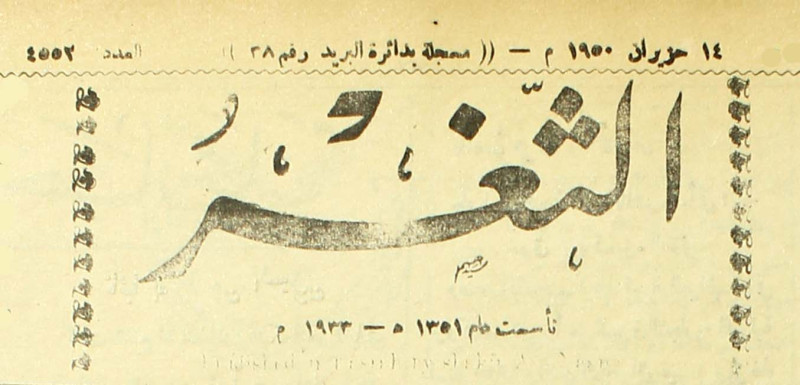 ١٤ حزيران ١٩٥٠ م — (( مسجلة بدائرة البريد رقم ٣٨ )) العدد ٤٥٥٢
الثغر
تأسست عام ١٣٥١ ه — ١٩٣٣ م